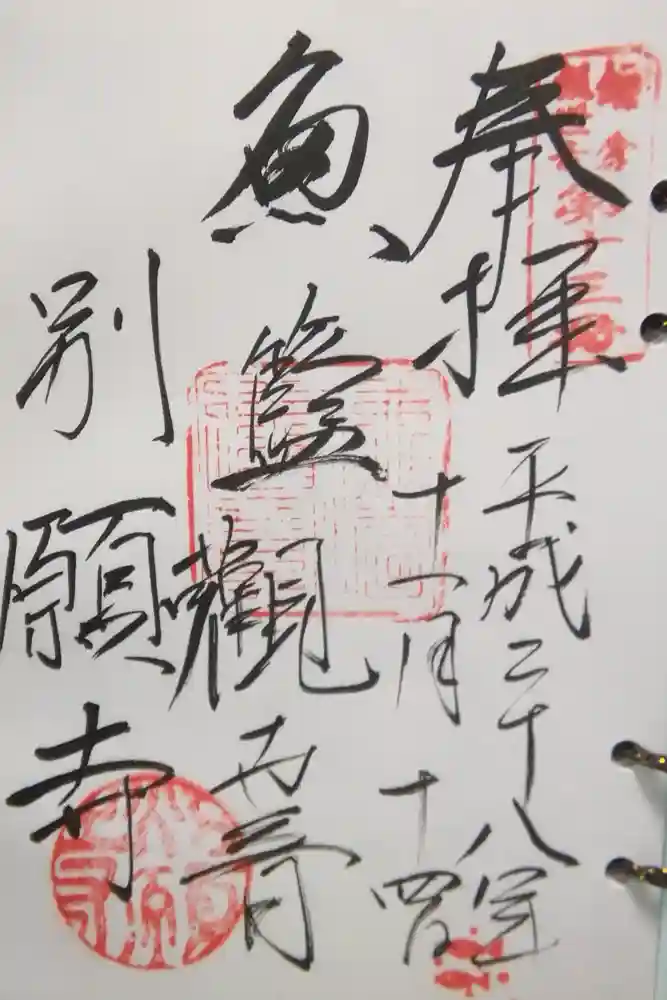 奉拝
平成二十八年
十一月十四日
魚籃觀世音
別願寺
第十三番